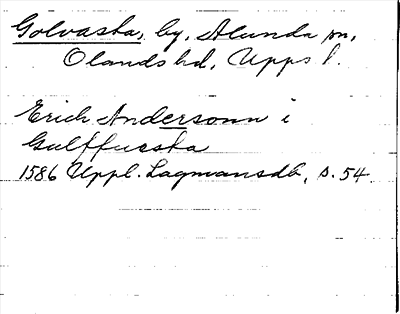 Golvasta, by, Alunda sn,
Olands hd, Upps l.
Erich Andersonn i
Gulffuasta
1586 Uppl. Lagmansdb, s. 54.